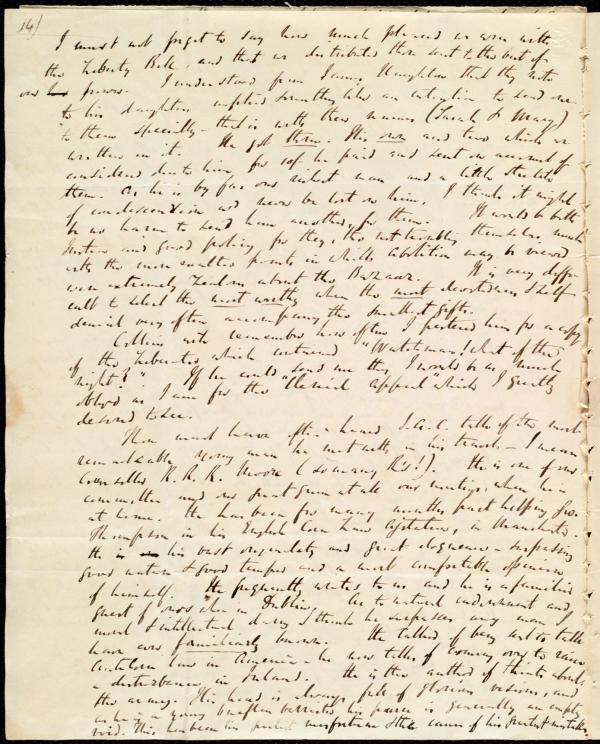 14)
I must not forget to say how much pleased we were with
the Liberty Bell, and that we distributed them sent to the best of
our power. I understood from James Haughton that they note
to his daughters implied something like an intention to send one
to them specially - that is with their names (Sarah & Mary)
written in it. He got three. His own and two which we
considered due to him, for wh he paid and sent on account of
them. As he is by far our richest man and a little
of condescension wd never be lost on him, I think it might
be no harm to send him another, for them. It would be both
justice and good policy, for they, tho not troubling themselves much
with the more exalted points in which abolition may be viewed
were extremely zealous about the Bazaar. It is very diffi-
cult to select the most worthy when the most devotedness & self
denial very often accompany the smallest gifts.
Collins will remember how often I pestered him for a copy
of the Liberator which contained "Watchman! What of the
night?" If he could send me this, I would be as much
obliged as I am for the "Clerical Appeal" which I greatly
desired to see.
You must have often heard J.A.C. talk of the most
remarkable young man he met with in his travels - I mean
Counsellor R. R. R. Moore (so many R's!). He is one of our
committee and our great gun at all our meetings, when he is
at home. He has been for many months past helping Geo.
Thompson in his English Corn Law Agitation, in Manchester.
He is his vast singularity and great eloquence - surpassing
good nature & good temper and a most comfortable opinion
of himself. He frequently writes to us and he is a familiar
guest of ours when in Dublin. As to natural endowment and
moral & intellectual daring I think he surpasses any man I
have ever familiarly known. He talked of being sent to talk
Anti Corn Law in America - he now talks of coming over to raise
a disturbance in Ireland. He is the author of thirds about
the army. His head is always full of glorious visions, and
as being a young briefless barrister his purse is generally an empty
void. This has been his greatest misfortune & the cause of his greatest mistakes